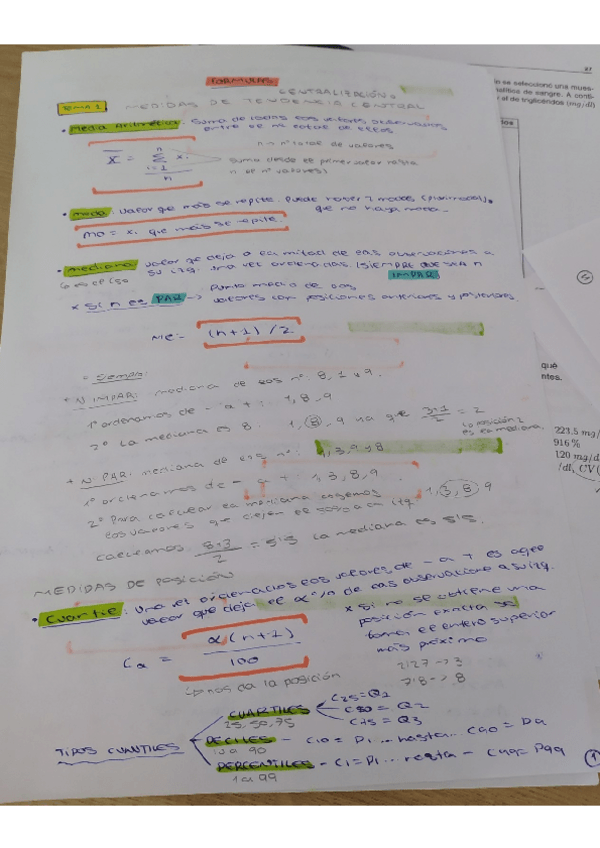 FORMULAS
CENTRALIZACIÓN
TEMA 1 MEDIDAS DE TENDENCIA CENTRAL
• Media Aritmética: Suma de todos los valores observados
entre el nº total de ellos
n = nº total de valores
X = Σ xi n i=1 / n
Suma desde el primer valor hasta
n (el nº valores)
• Moda: Valor que más se repite. Puede haber 2 modas (plurimodal)
que no haya moda
Mo = xi que más se repite
• Mediana: Valor que deja a la mitad de las observaciones a
su izq. una vez ordenadas. (SIEMPRE QUE SEA n
IMPAR)
* Si n es PAR → Punto medio de los
valores con posiciones anteriores y posteriores
Me = (n+1)/2
Ejemplo:
* N IMPAR: mediana de los nº: 8, 1 y 9.
1º ordenamos de - a +: 1, 8, 9
2º La mediana es 8. 1, 8, 9 ya que 3+1/2 = 2
La posición 2
es la mediana
* N PAR: mediana de los nº: 1, 3, 9 y 8
1º ordenamos de - a +: 1, 3, 8, 9
2º Para calcular la mediana cogemos 1, 3, 8, 9
los valores que dejen el 50% a la izq.
calculamos 8+3/2 = 5'5 La mediana es 5'5.
MEDIDAS DE POSICIÓN
• Cuantil: Una vez ordenados los valores de - a + es aquel
valor que deja el α% de las observaciones a su izq.
Cα = α(n+1)/100
* Si no se obtiene una
posición exacta se
toma el entero superior
más próximo
2'27 → 3
7'8 → 8
nos da la posición
TIPOS CUANTILES
CUARTILES C25=Q1
25, 50, 75 C50 = Q2
C75 = Q3
DECILES - C10 = D1... hasta... C90 = D9
10 a 90
PERCENTILES - C1=P1... hasta - C99=P99
1 a 99
1
223.5 mg/
916%
120 mg/d
/dl, CV(